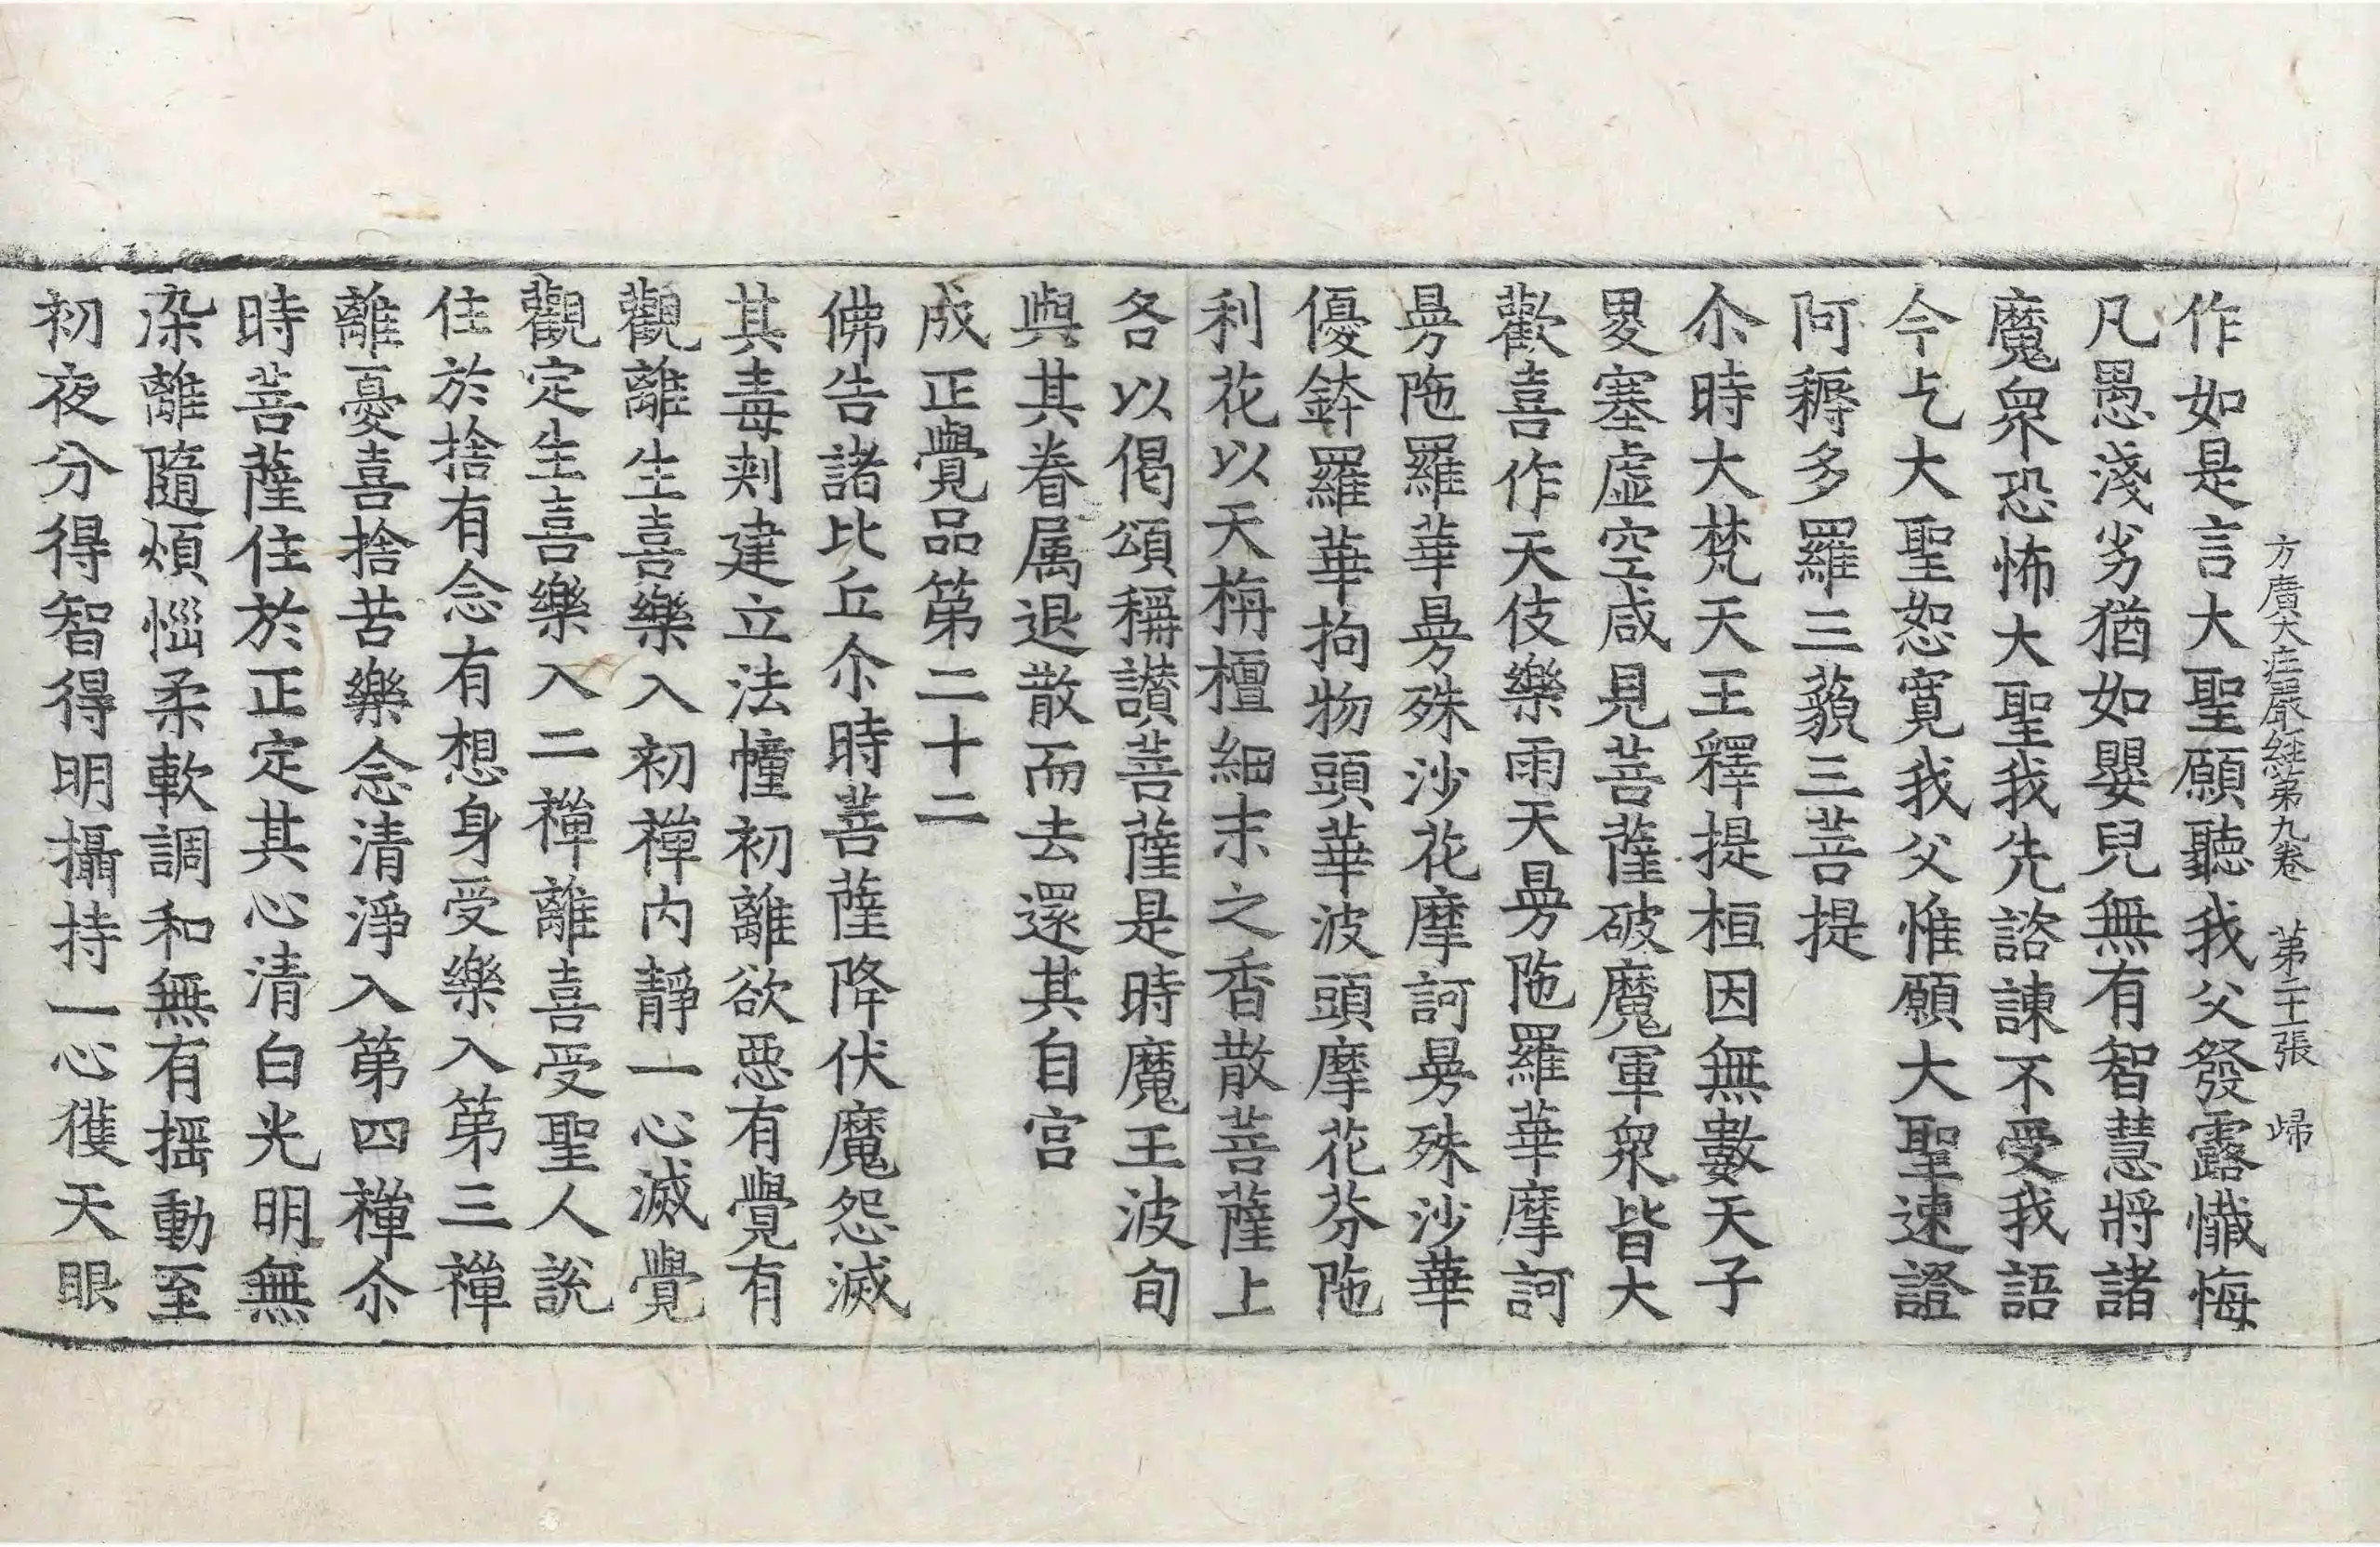 方廣大庄嚴經第九卷 第二十張 㱕
作如是言大聖願聽我父發露懺悔
凡愚淺劣猶如嬰兒無有智慧將諸
魔衆恐怖大聖我先諮諫不受我語
今乞大聖恕寛我父惟願大聖速證
阿耨多羅三藐三菩提
尒時大梵天王釋提桓因無數天子
畟塞虛空咸見菩薩破魔軍衆皆大
歡喜作天伎樂雨天曼陁羅華摩訶
曼陁羅華曼殊沙花摩訶曼殊沙華
優鉢羅華拘物頭華波頭摩花芬陁
利花以天栴檀細末之香散菩薩上
各以偈頌稱讃菩薩是時魔王波旬
與其眷属退散而去還其自宮
成正覺品第二十二
佛告諸比丘尒時菩薩降伏魔怨滅
其毒刾建立法幢初離欲惡有覺有
觀離生喜樂入初禪内靜一心滅覺
觀定生喜樂入二禪離喜受聖人說
住於捨有念有想身受樂入第三禪
離憂喜捨苦樂念清淨入第四禪尒
時菩薩住於正定其心清白光明無
染離隨煩惱柔軟調和無有摇動至
初夜分得智得明攝持一心獲天眼